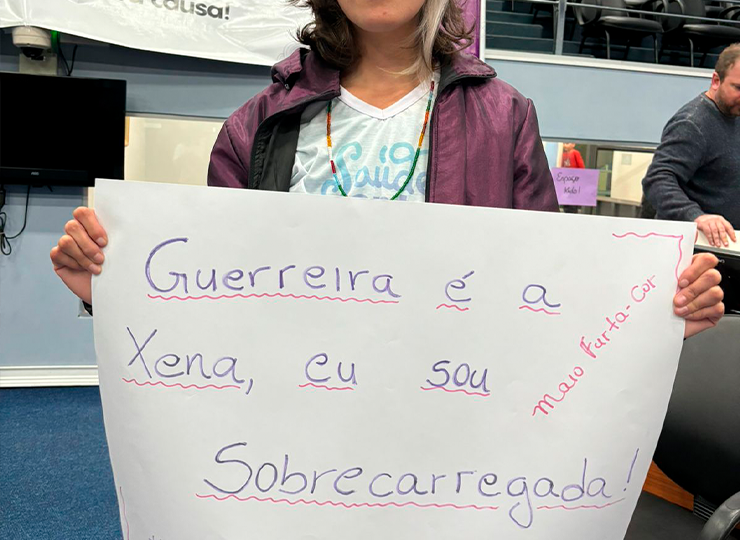 causa!
Saúde
Espaço
Guerreira é a
Xena, eu sou
Sobrecarregada!
Maio Furta-Cor